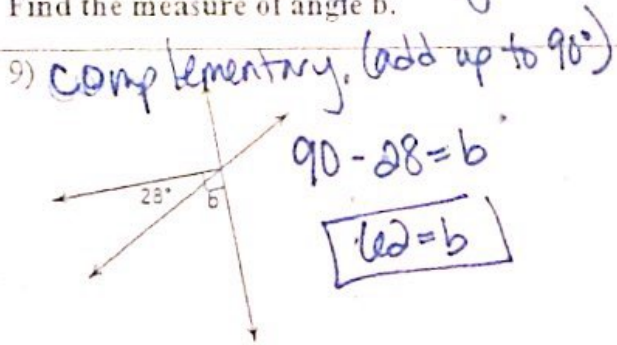 Find the measure of angle b.
9) complementary. (add up to 90°)
90-28=b
28° b
62=b